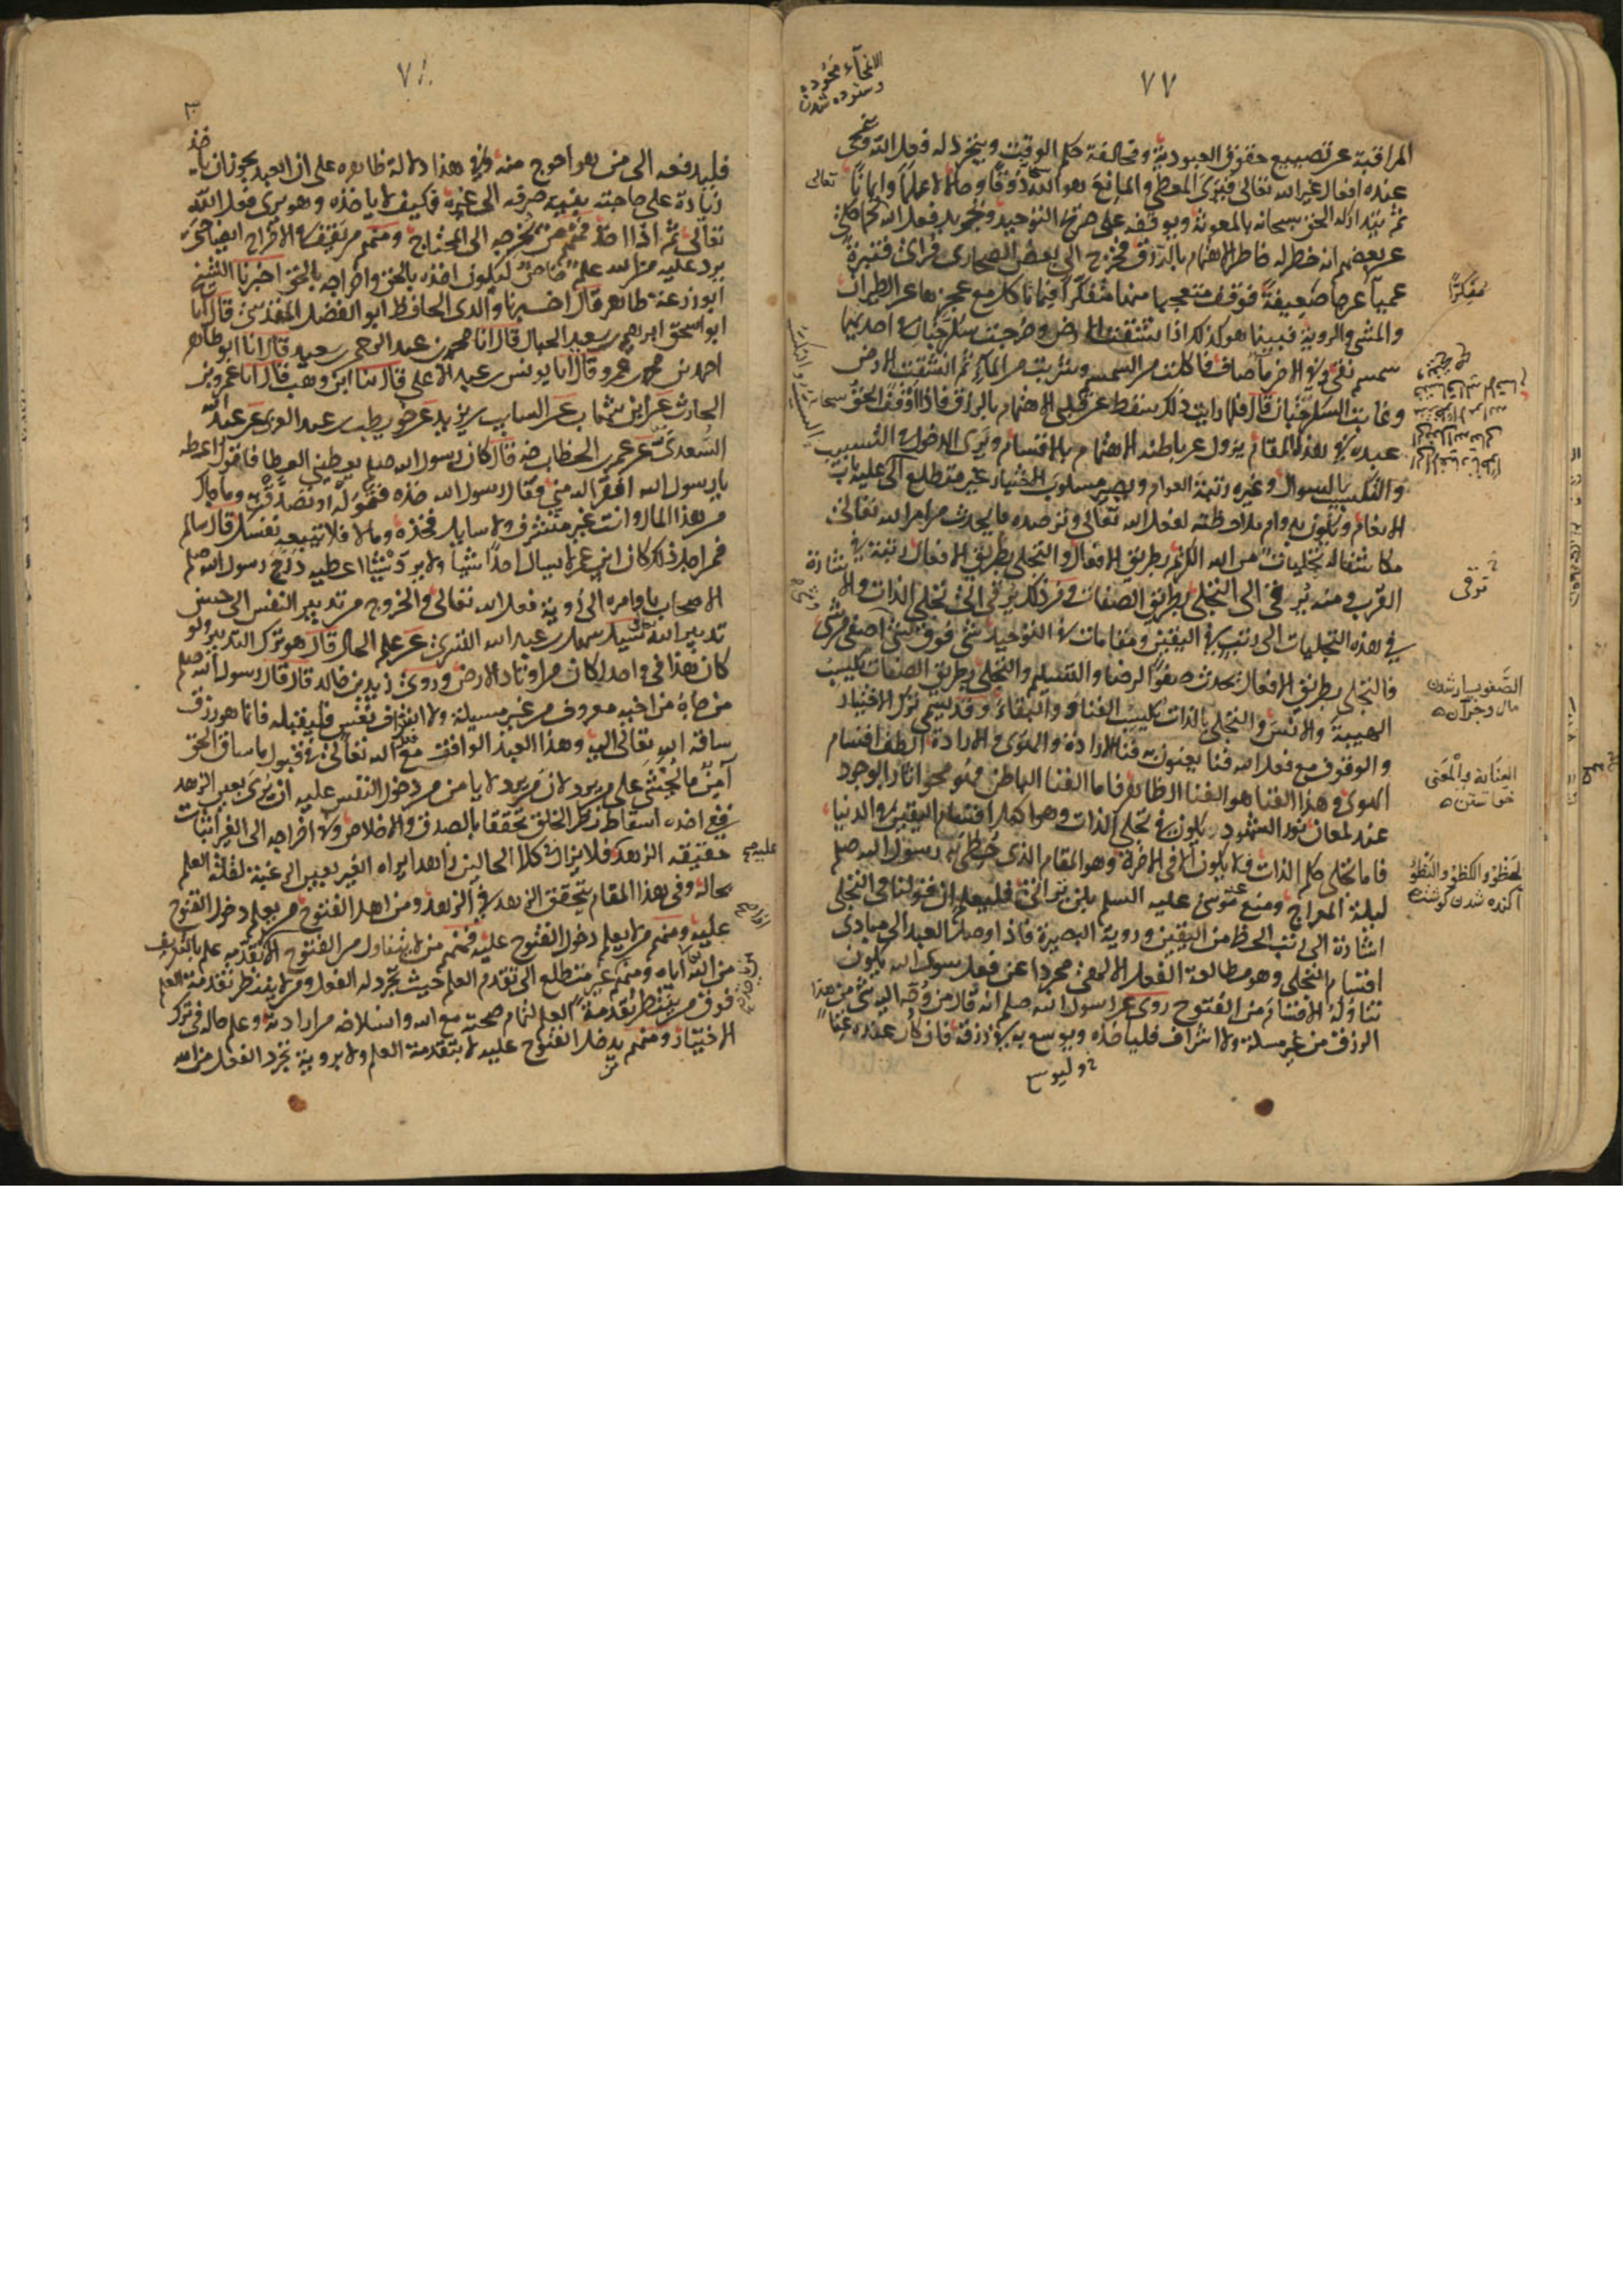 ٧٧
المراقبة عن تضييع حقوق العبودية ومخالفة حكم الوقت ويتجرد له فعل الله وتمحى
عنده افعال غير الله تعالى فيرى المعطي والمانع هو الله ذوقا وحالا لا علما وايمانا
ثم يتداركه الحق سبحانه بالمعونة ويوقفه على صرح التوحيد وتجريد فعل الله كما حكي
عن بعضهم انه خطر له خاطر الاهتمام بالرزق فخرج الى بعض الصحارى فرأى قنبرة
عمياء عرجا ضعيفة فوقف متعجبا منها متفكرا فيما تأكل مع عجزها عن الطيران
والمشي والروية فبينا هو كذلك اذ انشقت الارض وخرجت سكرجتان في احديهما
سمسم نقي وفي الاخرى ماء صاف فاكلت من السمسم وشربت من الماء ثم انشقت الارض
وغابت السكرجتان قال فلما رايت ذلك سقط عن قلبي الاهتمام بالرزق فاذا اوقف الحق سبحانه
عبده في هذا المقام يزول عن باطنه الاهتمام بالاقسام ويرى الدخول في التسبيب
والتكسب بالسوال وغيره رتبة العوام ويصير مسلوب الاختيار غير متطلع الى
الانعام ويكون بدوام ملاحظته لفعل الله تعالى وترصده ما يحدث من امر الله تعالى
مكاشفا له تجليات من الله الكريم بطريق الافعال والتجلي بطريق الافعال رتبة في
القرب ومنه يرقى الى التجلي بطريق الصفات ومن ذلك يرقى الى تجلي الذات والاشارة
في هذه التجليات الى رتب في اليقين ومقامات في التوحيد شي فوق شي اصفى من شي
فالتجلي بطريق الافعال يحدث صفو الرضا والتسليم والتجلي بطريق الصفات يكسب
الهيبة والانس والتجلي بالذات يكسب الفناء والبقاء وقد يسمى ترك الاختيار
والوقوف مع فعل الله فنا يعنون به فنا الارادة والهوى والارادة الطف اقسام
الهوى وهذا الفنا هو الفنا الظاهر فاما الفنا الباطن فهو محو اثار الوجود
عند لمعان نور الشهود يكون في تجلي الذات وهو اكمل اقسام اليقين في الدنيا
فاما تجلي حكم الذات فلا يكون الا في الاخرة وهو المقام الذي حظي به رسول الله صلعم
ليلة المعراج ومنع عنه موسى عليه السلم بلن تراني فليعلم ان قولنا في التجلي
اشارة الى رتب الحظ من اليقين وروية البصيرة فاذا وصل العبد الى مبادي
اقسام التجلي وهو مطالعة الفعل الالهي مجردا عن فعل سوى الله يكون
تناوله الاقسام من الفتوح روي عن رسول الله صلعم انه قال من وجه اليه شي من هذا
الرزق من غير مسلة ولا اشراف فلياخذه ويوسع به في رزقه فان كان عنده غنا
تعالى
متفكرا
ترقى
فليدفعه الى من هو احوج منه وفي هذا دلالة ظاهره على ان العبد يجوز ان ياخذ
زيادة على حاجته بنية صرفه الى غيره فكيف لا ياخذه وهو يرى فعل الله
تعالى ثم اذا اخذ فمنهم من يخرجه الى المحتاج ومنهم من يقف في الاخراج ايضا حتى
يرد عليه من الله علم خاص ليكون اخذه بالحق واخراجه بالحق اخبرنا الشيخ
ابوزرعة طاهر قال اخبرنا والدي الحافظ ابو الفضل المقدسي قال انا
ابو اسحق ابرهيم بن سعيد الحبال قال انا محمد بن عبد الرحمن بن سعيد قال انا ابو طاهر
احمد بن محمد بن عمرو قال انا يونس بن عبد الاعلى قال ثنا ابن وهب قال انا عمرو بن
الحارث عن ابن شهاب عن السايب بن يزيد عن حويطب بن عبد العزى عن عبد الله
السعدي عن عمر بن الخطاب رضه قال كان رسول الله صلعم يعطيني العطا فاقول اعطه
يا رسول الله افقر اليه مني فقال رسول الله خذه فتموله او تصدق به وما جاك
من هذا المال وانت غير متشرف ولا سايل فخذه وما لا فلا تتبعه نفسك قال سالم
فمن اجل ذلك كان ابن عمر لا يسال احدا شيا ولا يرد شيئا اعطيه درج رسول الله صلعم
الاصحاب باوامره الى روية فعل الله تعالى والخروج من تدبير النفس الى حسن
تدبير الله سيل سهل بن عبد الله التستري عن علم الحال قال هو ترك التدبير ولو
كان هذا في واحد لكان من اوتاد الارض وروى زيد بن خالد قال قال رسول الله صلعم
من جاءه من اخيه معروف من غير مسيلة ولا اشراف نفس فليقبله فانما هو رزق
ساقه الله تعالى اليه وهذا العبد الواقف مع الله تعالى في قبول ما ساق الحق
آمن ما يخشى على من يرد لان من يرد لا يامن من دخول النفس عليه ان يرى بعين الزهد
ففي اخذه اسقاط نظر الخلق تحققا بالصدق والاخلاص وفي اخراجه الى الغير اثبات
حقيقه الزهد فلا يزال في كلا الحالين زاهدا يراه الغير بعين الرغبة لقلة العلم
بحاله وفي هذا المقام يتحقق الزهد في الزهد ومن اهل الفتوح من يعلم دخول الفتوح
عليه ومنهم من لا يعلم دخول الفتوح عليه فمنهم من لا يتناول من الفتوح الا اذا تقدمه علم بالتعريف
من الله اياه ومنهم غير متطلع الى تقدم العلم حيث تجرد له الفعل ومن لا ينتظر تقدمة العلم
فوق من ينتظر تقدمة العلم لتمام صحبته مع الله وانسلاخه من ارادته وعلم حاله في ترك
الاختيار ومنهم يدخل الفتوح عليه لا بتقدمة العلم ولا بروية تجرد الفعل من الله